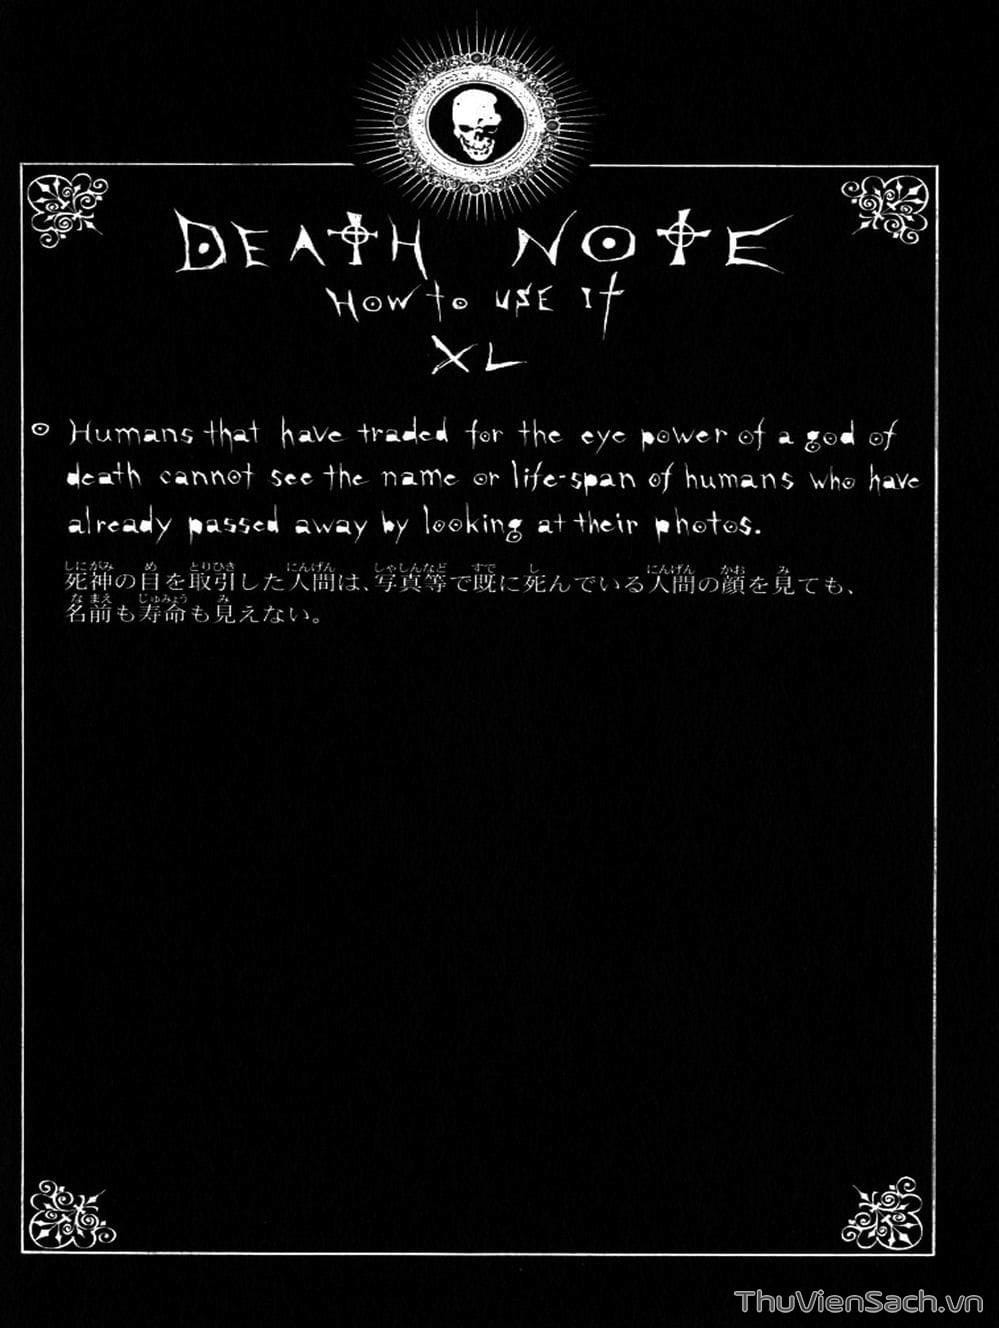 DEATH NOTE
HOW to USE It
XL
Humans that have traded for the eye power of a god of
death cannot see the name or life-span of humans who have
already passed away by looking at their photos.
しにがみ め とりひき にんげん しゃしんなど すで し にんげん かお み
死神の目を取引した人間は、写真等で既に死んでいる人間の顔を見ても、
なまえ じゅみょう み
名前も寿命も見えない。
ThuVienSach.vn